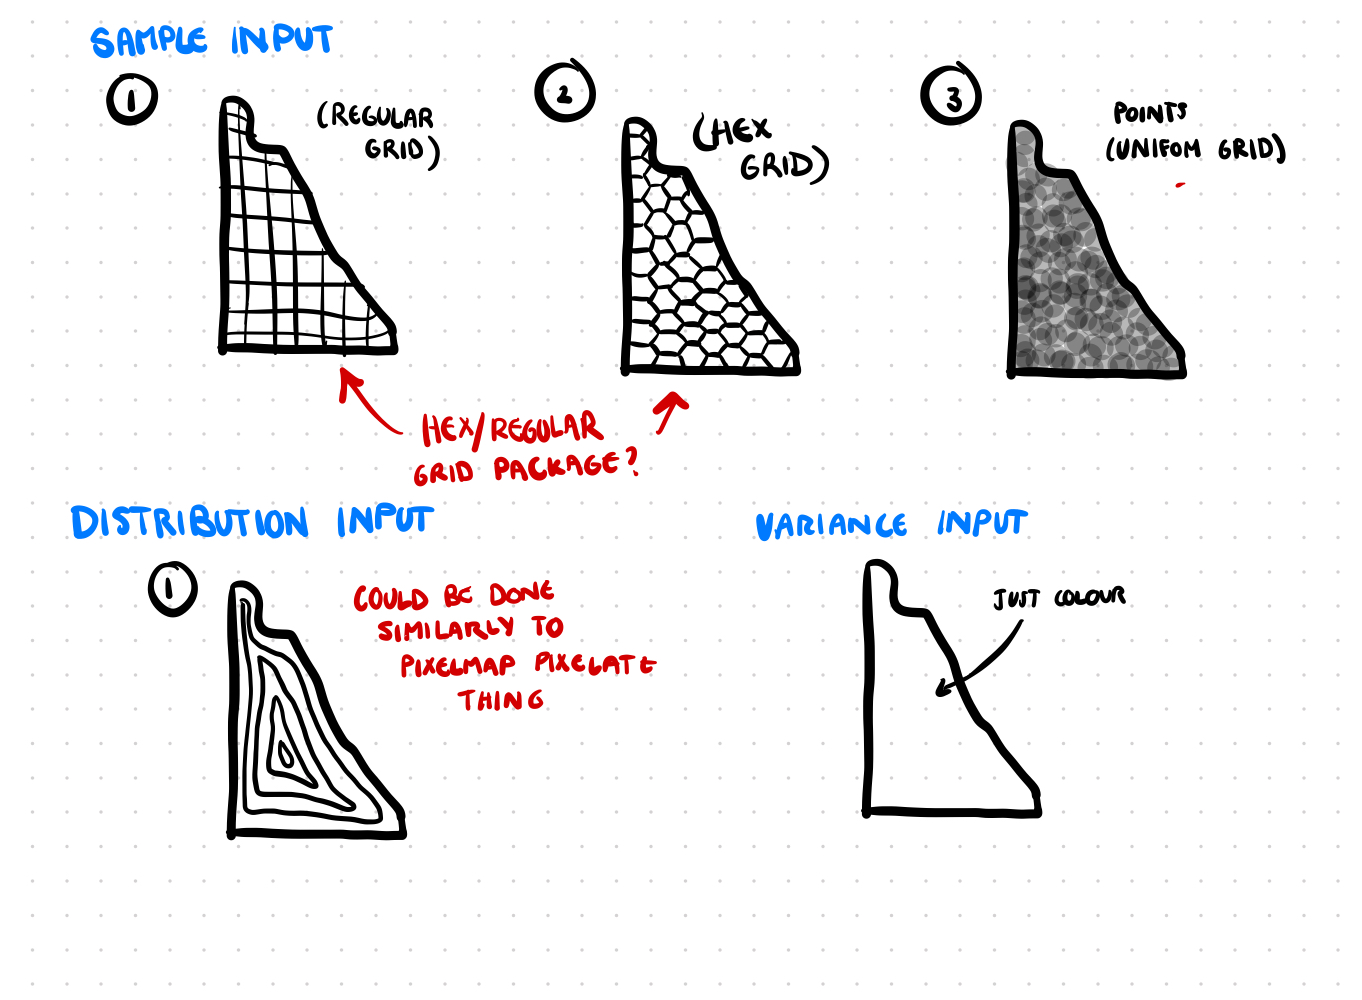 SAMPLE INPUT
1
(REGULAR
GRID)
2
(HEX
GRID)
3
POINTS
(UNIFOM GRID)
HEX/REGULAR
GRID PACKAGE?
DISTRIBUTION INPUT
1
COULD BE DONE
SIMILARLY TO
PIXELMAP PIXELATE
THING
VARIANCE INPUT
JUST COLOUR